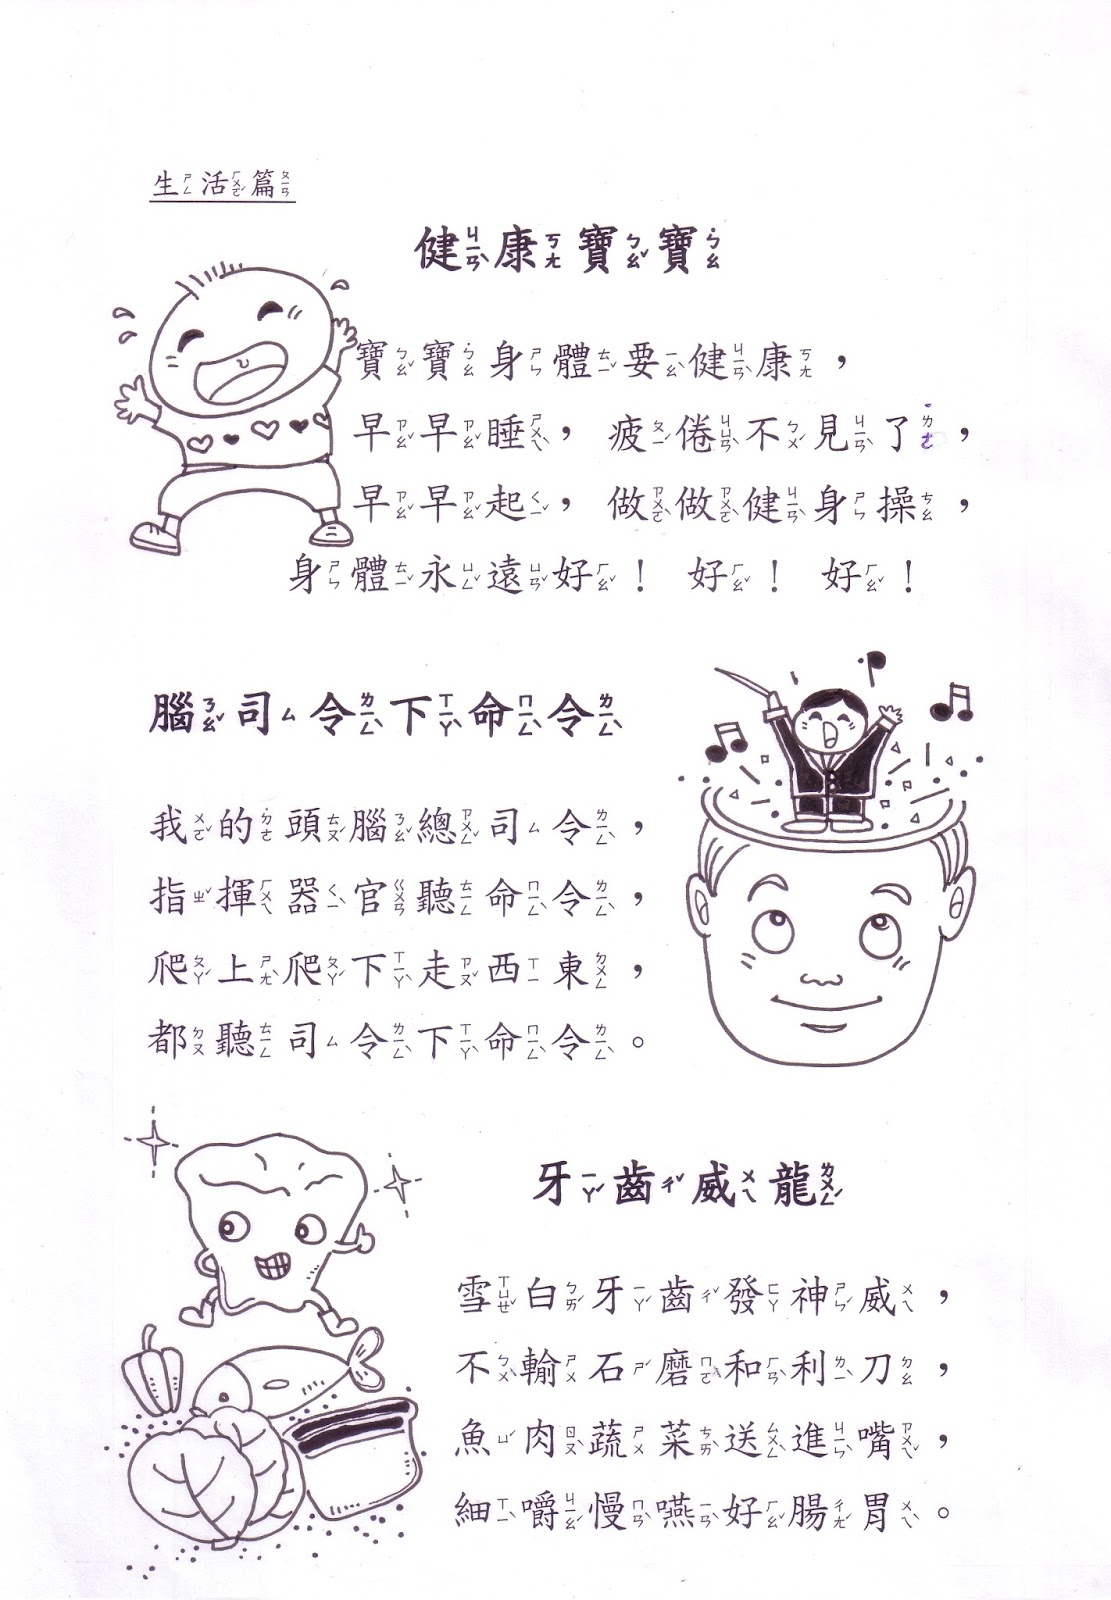 生活篇
健康寶寶
寶寶身體要健康，
早早睡，疲倦不見了，
早早起，做做健身操，
身體永遠好！好！好！
腦司令下命令
我的頭腦總司令，
指揮器官聽命令，
爬上爬下走西東，
都聽司令下命令。
牙齒威龍
雪白牙齒發神威，
不輸石磨和利刀，
魚肉蔬菜送進嘴，
細嚼慢嚥好腸胃。